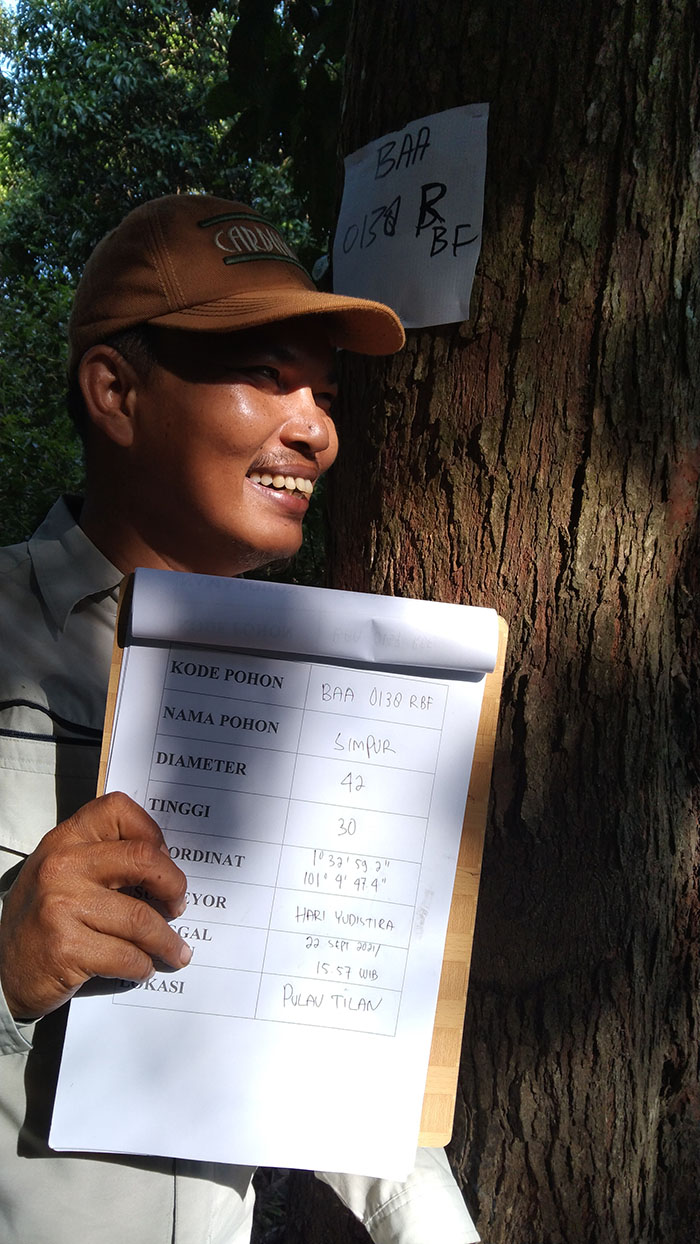 CARDIN
BAA
0130 R
BF
KODE POHON BAA 0130 RBF
NAMA POHON SIMPUR
DIAMETER 42
TINGGI 30
ORDINAT 1° 32' 59 2"
101° 4' 47 4"
EYOR HARI YUDISTIRA
GGAL 22 SEPT 2021/
15.57 WIB
LOKASI PULAU TILAN